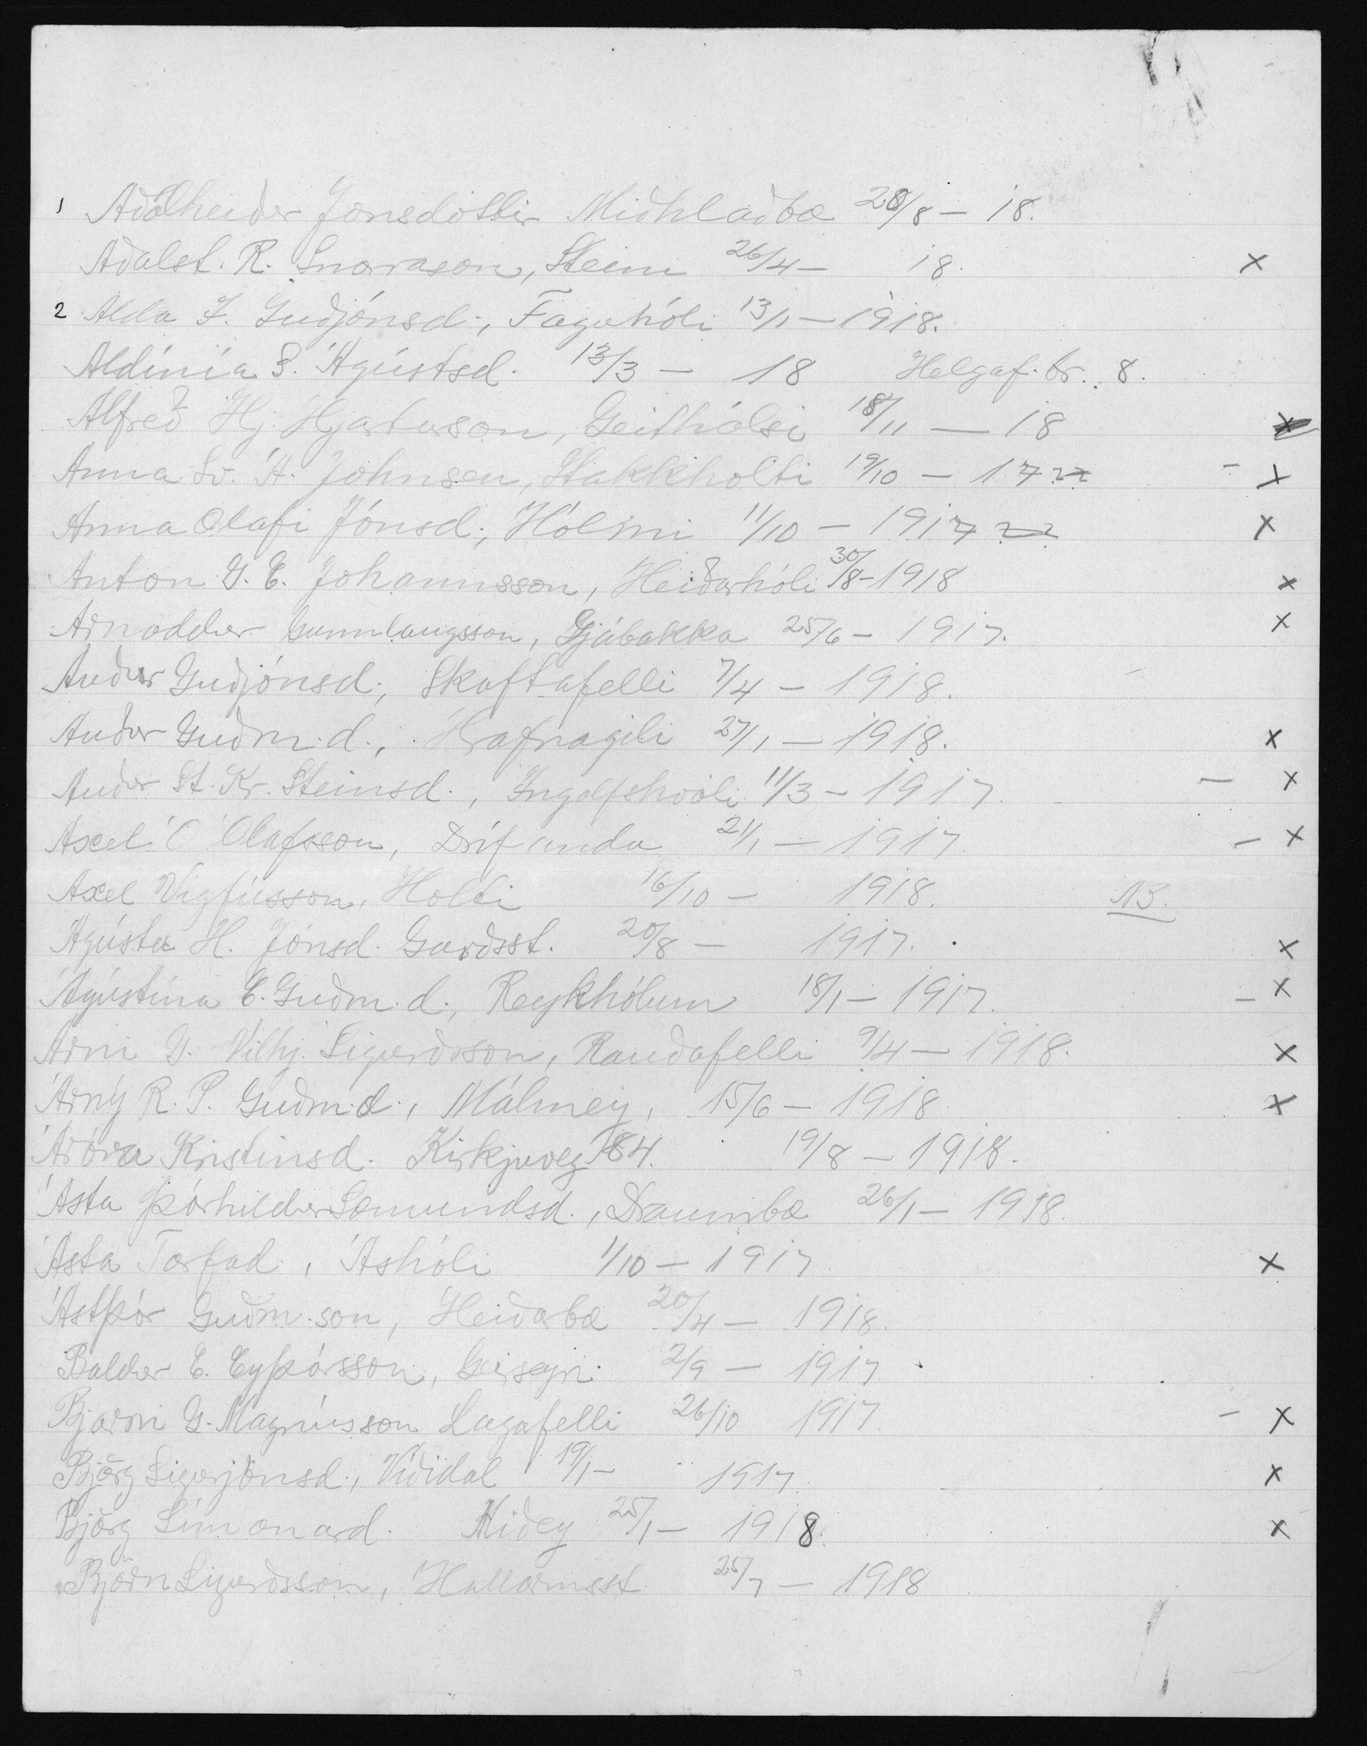 1 Aðalheiður Jónsdóttir Miðhlaðbæ 28/8 – 18.
Aðalst. R. Snorrason, Steini 26/4 – 18. x
2 Alda F. Guðjónsd., Fagurhóli 13/1 – 1918.
Aldínía S. Ágústsd. 13/3 – 18 Helgaf.br. 8.
Alfreð Hj. Hjartarson, Geithálsi 18/11 – 18 x
Anna Sv. Á. Johnsen, Stakkholti 19/10 – 17 – x
Anna Olafi Jónsd., Hólmi 11/10 – 1917 x
Anton G. E. Johannsson, Heiðarhóli 30/8 – 1918 x
Arnoddur Gunnlaugsson, Gjábakka 25/6 – 1917. x
Auður Guðjónsd., Skaftafelli 7/4 – 1918. –
Auður Guðm.d., Hrafnagili 27/1 – 1918. x
Auður St. Kr. Steinsd., Ingólfshvoli 11/3 – 1917. – x
Axel Ó Ólafsson, Drífanda 21/1 – 1917. – x
Axel Vigfússon, Holti 16/10 – 1918. 13.
Ágústa H. Jónsd. Garðsst. 20/8 – 1917. x
Ágústína E. Guðm.d., Reykhólum 18/1 – 1917. – x
Árni G. Vilhj. Sigurðsson, Rauðafelli 9/4 – 1918. x
Árný R. P. Guðm.d., Málmey, 15/6 – 1918 x
Áróra Kristinsd. Kirkjuveg 84. 19/8 – 1918.
Ásta Þórhildur Sæmundsd., Draumbæ 26/1 – 1918.
Ásta Torfad., Áshóli 1/10 – 1917 x
Ástþór Guðm.son, Heiðarbæ 20/4 – 1918.
Baldur E. Eyþórsson, Geirseyri 2/9 – 1917.
Bjarni G. Magnússon Lágafelli 26/10 1917. – x
Björg Sigurjónsd., Víðidal 19/1 – 1917. x
Björg Símonard. Miðey 25/1 – 1918. x
Björn Sigurðsson, Hallormsst. 25/7 – 1918